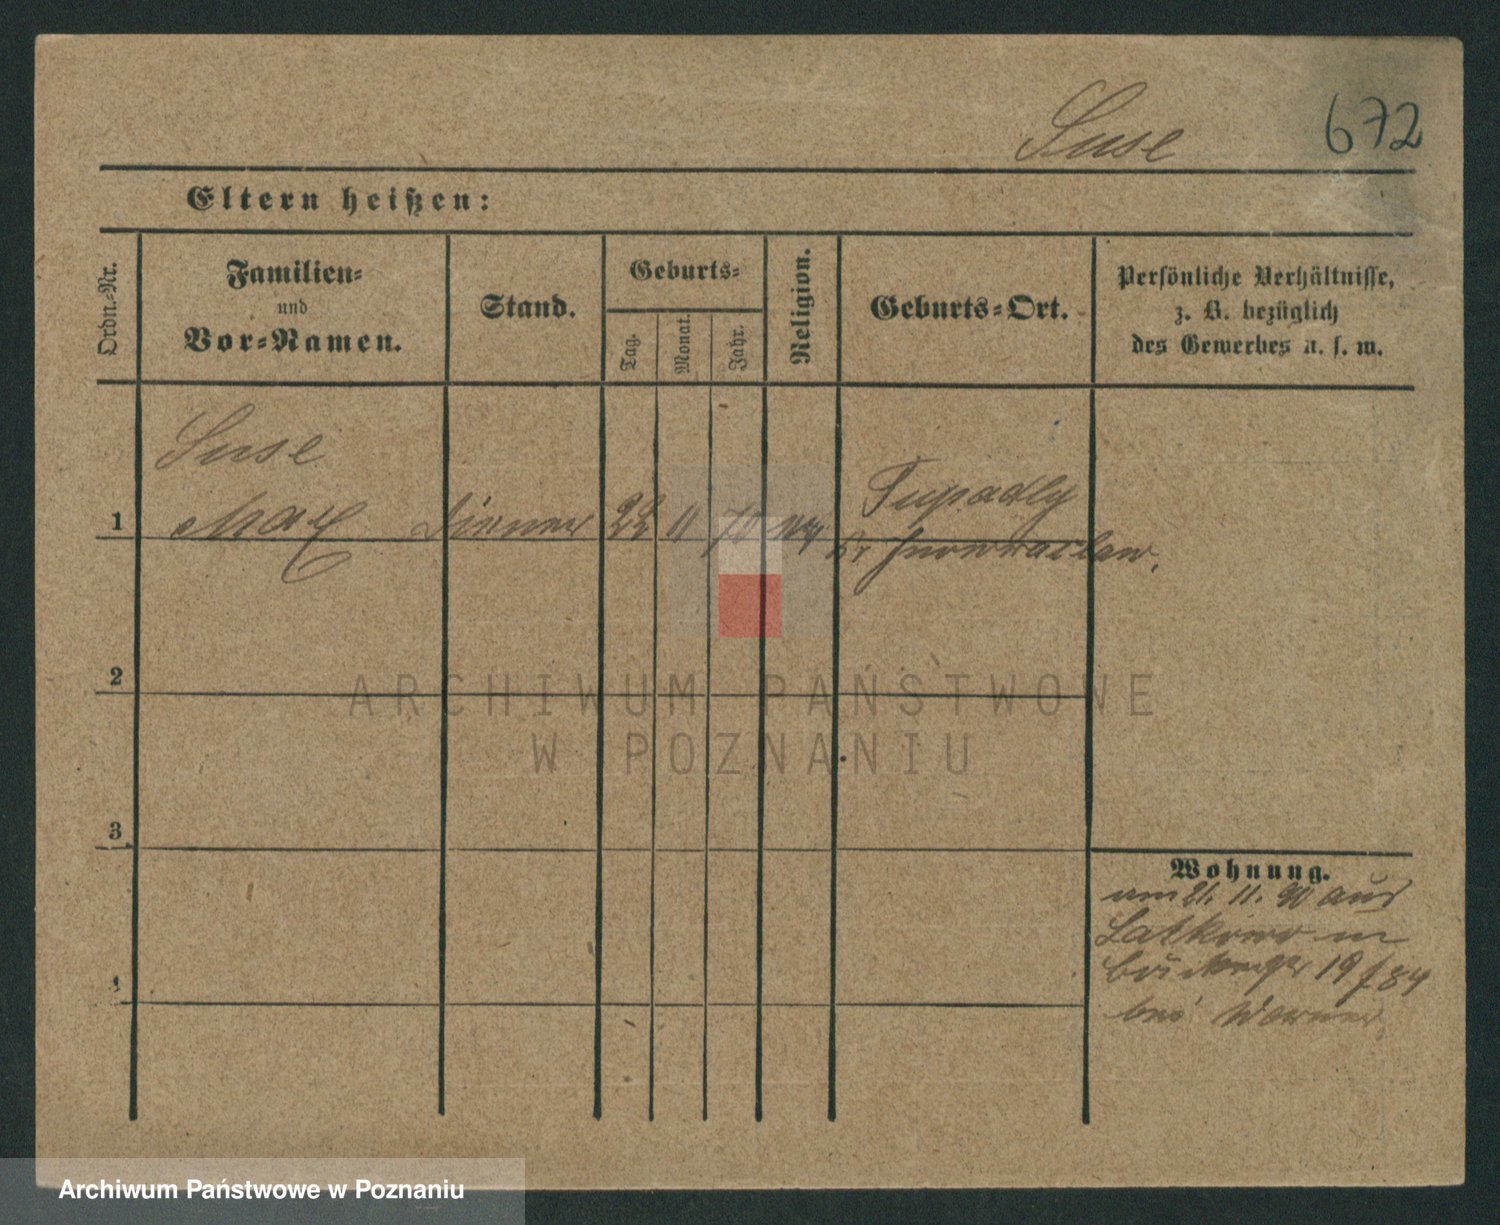 Suse 672
Eltern heißen:
Ordn.-Nr.
Familien-
und
Vor-Namen.
Stand.
Geburts-
Tag.
Monat.
Jahr.
Religion.
Geburts-Ort.
Persönliche Verhältnisse,
z. B. bezüglich
des Gewerbes u. s. w.
Suse
1 Max Diener 22 11 70
Tupadly
Kr Inowraclaw.
2
3
4
Wohnung.
am 21. 11. 90 aus
Latkowo in
19/84
bei
ARCHIWUM PAŃSTWOWE
W POZNANIU
Archiwum Państwowe w Poznaniu